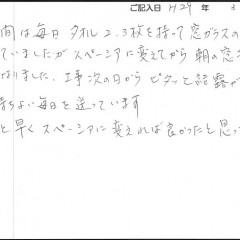 ご記入日 H29 年 3
間は毎日タオル2.3枚を持って窓ガラスの
ていましたが スペーシアに変えてから 朝の窓
なりました。工事次の日から ピタッと結露が
持ちよい毎日を送っています
と早く スペーシアに変えれば良かったと思っ